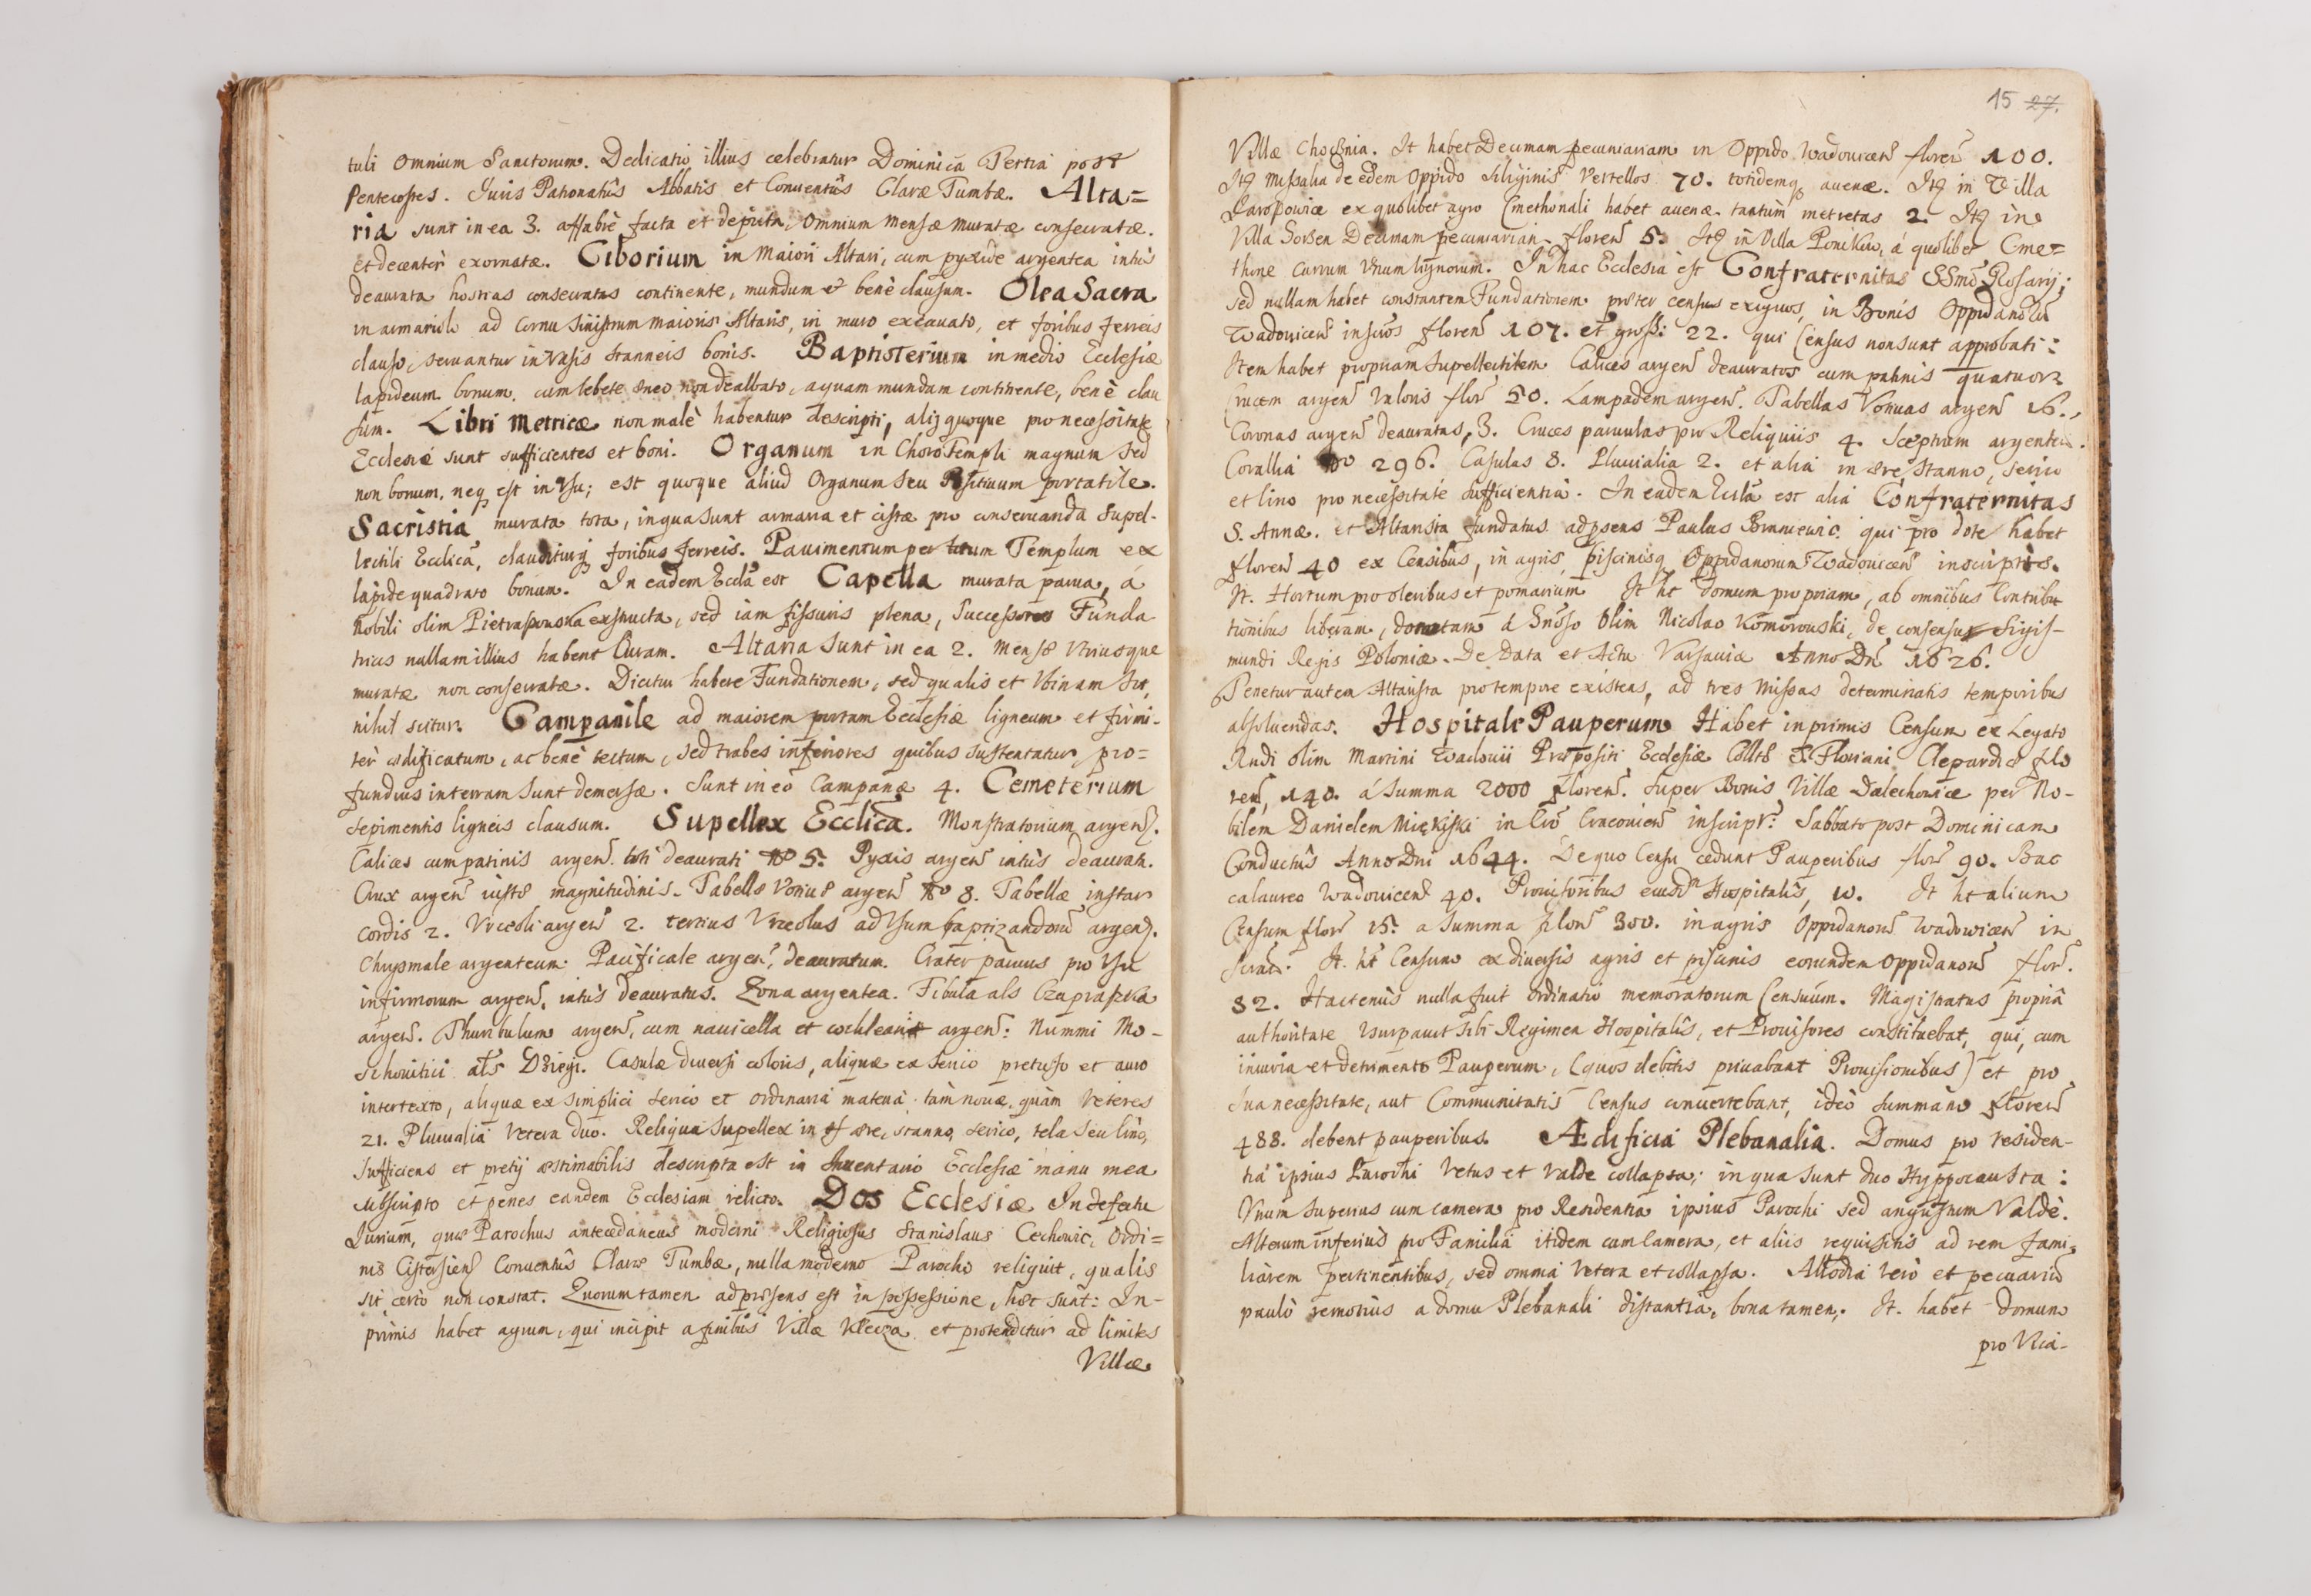 tuli Omnium Sanctorum. Dedicatio illius celebratur Dominica Tertia post
Pentecostes. Juris Patronatûs Abbatis et Conuentûs Claræ Tumbæ. Alta=
ria sunt in ea 3. affabrè facta et depicta, Omnium Mensæ muratæ consecratæ.
et decentèr exornatæ. Ciborium in Maiori Altari, cum pyxide argentea intùs
deaurata hostias consecratas continente, mundum et benè clausum. Olea Sacra
in armariolo ad Cornu Sinistrum Maioris Altaris, in muro excauato, et foribus ferreis
clauso, seruantur in Vasis stanneis bonis. Baptisterium in medio Ecclesiæ
lapideum bonum, cum lebete æneo non dealbato, aquam mundam continente, benè clau
sum. Libri Metricæ non malè habentur descripti, alij quoque pro necessitate
Ecclesiæ sunt sufficientes et boni. Organum in Choro Templi magnum sed
non bonum, neq est in Vsu; est quoque aliud Organum seu Positiuum portatile.
Sacristia murata tota, in qua sunt armaria et cistæ pro conseruanda supel-
lectili Ecclica, clauditurq foribus ferreis. Pauimentum per totum Templum ex
lapide quadrato bonum. In eadem Eccla est Capella murata parua, á
Nobili olim Pietraszonska exstructa, sed iam fissuris plena, Successores Funda
tricis nullam illius habent Curam. Altaria Sunt in ea 2. Mensæ Vtriusque
muratæ non consecratæ. Dicitur habere Fundationem, sed qualis et Vbinam sit,
nihil scitur. Campanile ad maiorem portam Ecclesiæ ligneum et firmi-
tèr ædificatum, ac benè tectum, sed trabes inferiores quibus sustentatur, pro=
fundius in terram sunt demersæ. Sunt in eo Campanæ 4. Cemeterium
sepimentis ligneis clausum. Supellex Ecclica. Monstratorium argen.
Calices cum patinis argen. toti deaurati No 5. Pyxis argen intùs deaurata.
Crux argen iustæ magnitudinis. Tabellæ Votiuæ argen No 8. Tabellæ instar
Cordis 2. Vrceoli argen 2. tertius Vrceolus ad Vsum baptizandorum argen.
Chrysmale argenteum. Pacificale argen, deauratum. Crater paruus pro Vsu
infirmorum argen. intùs deauratus. Zona argentea. Fibula als Czapraszka
argen. Thuribulum argen, cum nauicella et cochleari argen: Nummi Mo-
schouitici als Dziegi. Casulæ diuersi coloris, aliquæ ex serico pretioso et auro
intertexto, aliquæ ex simplici serico et ordinaria materia, tàm nouæ quàm Veteres
21. Pluuialia Vetera duo. Reliqua Supellex in ære, stanno, serico, tela seu lino,
sufficiens et pretij æstimabilis descripta est in Inuentario Ecclesiæ manu mea
subscripto et penes eandem Ecclesiam relicto. Dos Ecclesiæ In defectu
Jurium, quæ Parochus antecedaneus moderni Religiosus Stanislaus Cechowic, Ordi=
nis Cistersien Conuentûs Claræ Tumbæ, nulla moderno Parocho reliquit, qualis
sit certò non constat. Quorum tamen ad præsens est in possessione, hæc sunt: In-
primis habet agrum, qui incipit a finibus Villæ Klecza et protenditur ad limites
Villæ
15 27.
Villæ Chocznia. It habet Decimam pecuniariam in Oppido Wadouicen floren 100.
Itq Missalia de eodem Oppido siliginis Vertellos 70. totidemq auenæ. Itq in Villa
Jaroszowice ex quolibet agro Cmethonali habet auenæ tantùm metretas 2. Itq in
Villa Gorzen Decimam pecuniariam floren 5. Itq in Villa Ponikiew, á quolibet Cme=
thone Currum Vnum lignorum. In hac Ecclesia est Confraternitas SSmi Rosarij;
sed nullam habet constantem Fundationem præter census exiguos, in Bonis Oppidanorum
Wadouicen inscrôs floren 107. et gross: 22. qui Census non sunt approbati:
Item habet propriam Supellectilem Calices argen deauratos cum patinis quatuor.
Crucem argen Valoris flor 50. Lampadem argen. Tabellas Votiuas argen 16.,
Coronas argen deauratas, 3. Cruces paruulas pro Reliquiis 4. Sceptrum argenteum.
Corallia No 296. Casulas 8. Pluuialia 2. et alia in ære, stanno, serico
et lino pro necessitate sufficientia. In eadem Eccla est alia Confraternitas
S. Annæ. et Altarista fundatus ad psens Paulus qui pro dote habet
floren 40 ex Censibus, in agris, piscinisq Oppidanorum Wadouicen inscriptis.
It. Hortum pro oleribus et pomarium It ht domum propriam, ab omnibus Contribu
tionibus liberam, donatam á Gnôso olim Nicolao Komorowski, de consensu Sigis-
mundi Regis Poloniæ. De Data et Actu Varsauiæ Anno Dni 1626.
Tenetur autem Altarista pro tempore existens, ad tres Missas determinatis temporibus
absoluendas. Hospitale Pauperum Habet inprimis Censum ex Legato
Rndi olim Martini Wadouii Præpositi Ecclesiæ Collæ S. Floriani Clepardiæ flo
ren, 140. á Summa 2000 floren. super Bonis Villæ Dalechowice per No-
bilem Danielem Miękiski in Cro Cracouien inscript: Sabbato post Dominicam
Conductûs Anno Dni 1644. De quo Censu cedunt Pauperibus flor 90. Bac
calaureo Wadouicen 40. Prouisoribus eiusdm Hospitalis, 10. It ht alium
Censum flor 15. a Summa floren 300. in agris Oppidanorum Wadouicen in
scrat. It. ht Censum ex diuersis agris et piscinis eorundem Oppidanorum flor.
32. Hactenùs nulla fuit ordinatio memoratorum Censuum. Magistratus propriâ
authoritate Vsurpauit sibi Regimen Hospitalis, et Prouisores constituebat, qui, cum
iniuria et detrimento Pauperum, (quos debitis priuabant Prouisionibus) et pro
sua necessitate, aut Communitatis Census conuertebant, ideò summam floren
488. debent pauperibus. Ædificia Plebanalia. Domus pro residen-
tia ipsius Parochi Vetus et Valde collapsa; in qua sunt duo Hyppocausta:
Vnum superius cum camera pro Residentia ipsius Parochi sed angustum Valdè.
Alterum inferius pro Familia itidem cum Camera, et aliis requisitis ad rem fami-
liarem pertinentibus, sed omnia Vetera et collapsa. Allodia verò et pecuaria
paulò remotius a domo Plebanali distantia, bona tamen. It. habet domum
pro Vica-